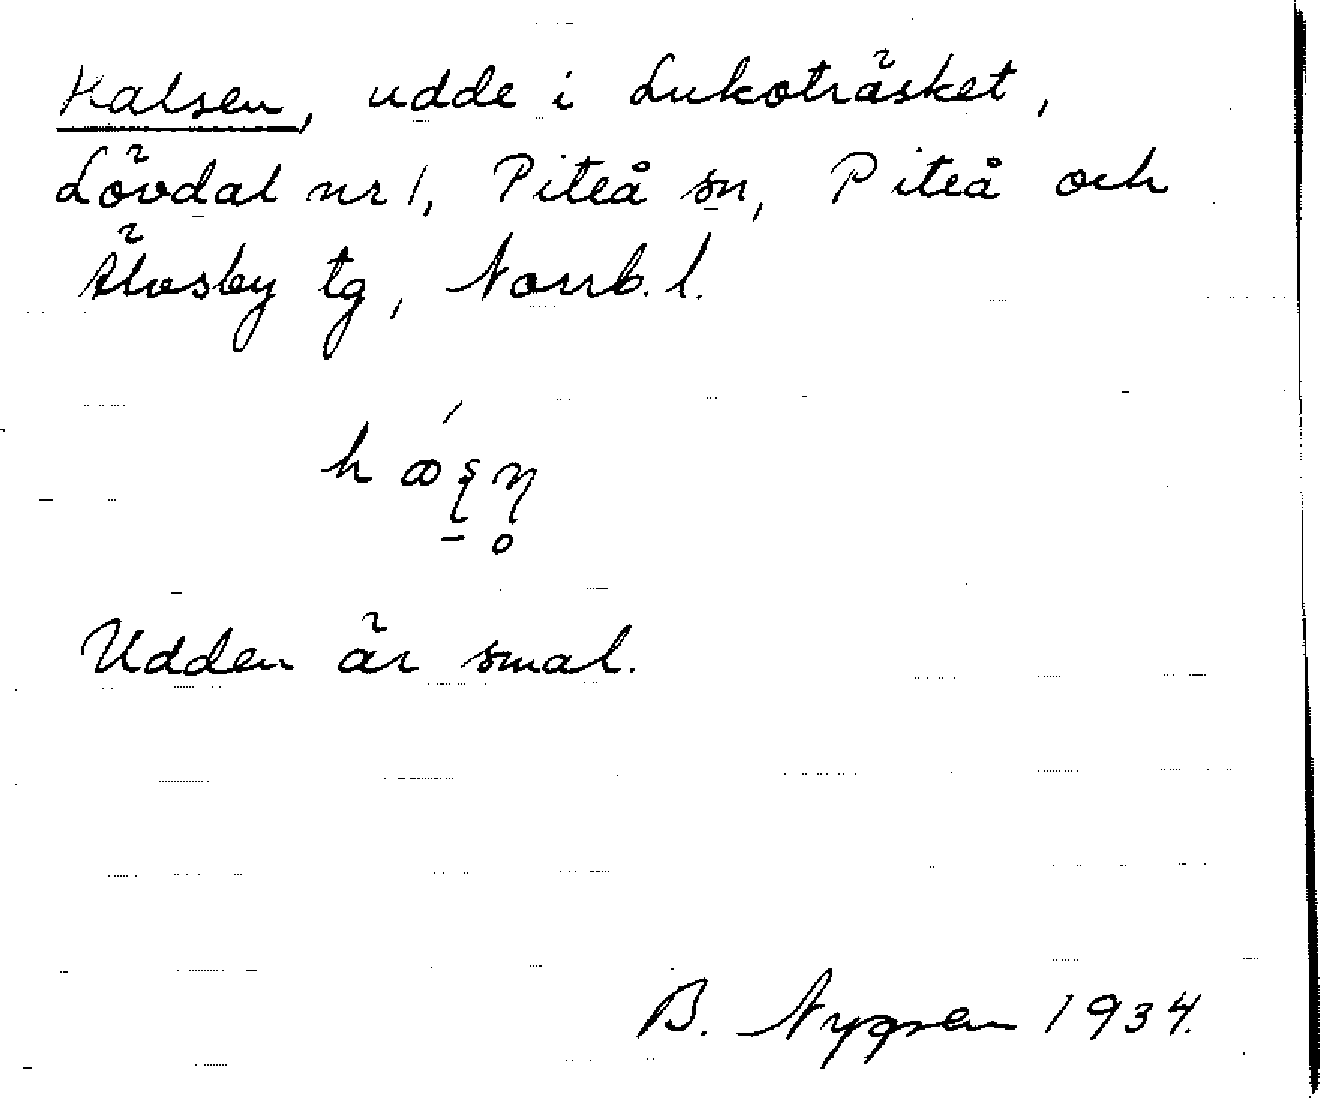 Halsen, udde i Lukoträsket,
Lövdal nr 1, Piteå sn, Piteå och
Älvsby tg, Norrb. l.
Udden är smal.
B. Nygren 1934.